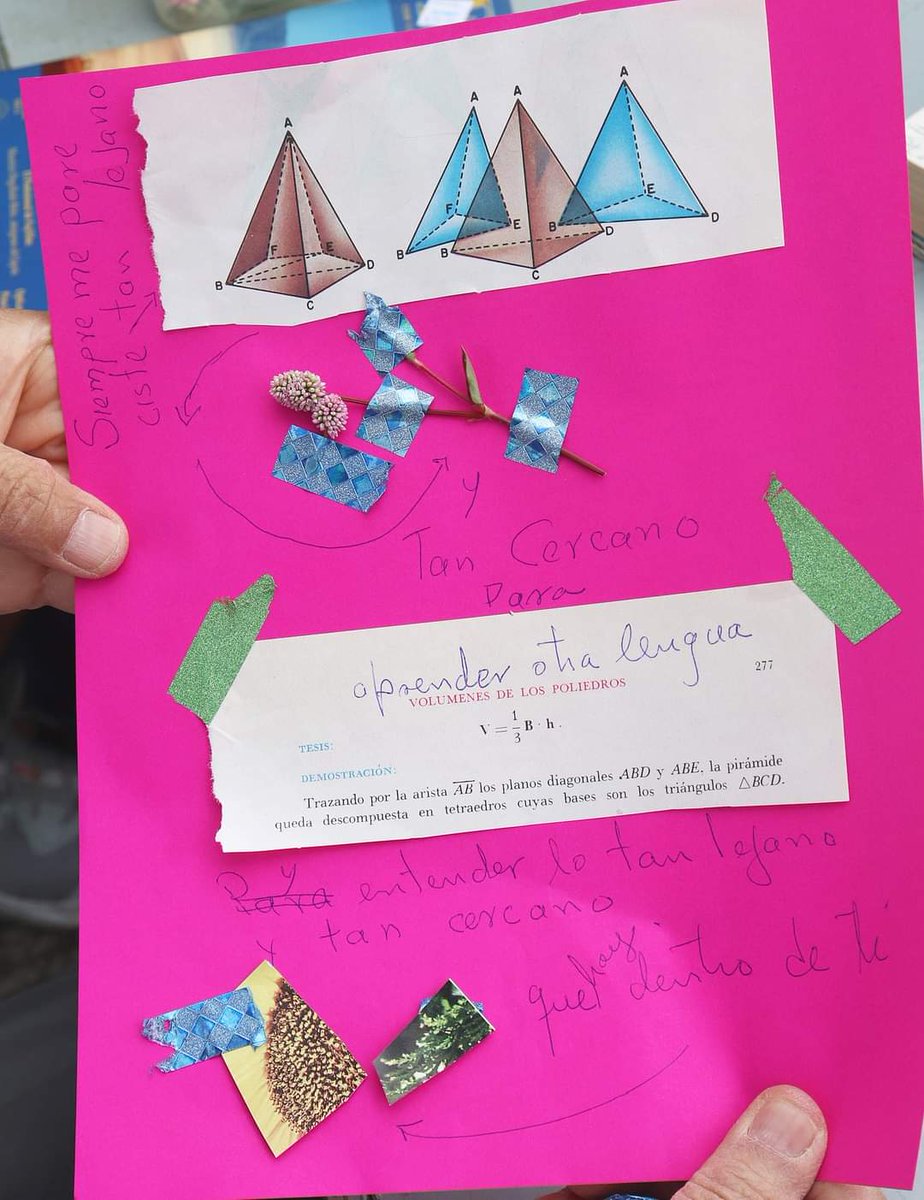 Siempre me pare
ciste tan lejano
A
B
F
E
D
C
A
A
A
F
E
E
B
B
B
D
D
C
y
Tan Cercano
Para
aprender otra lengua
277
VOLUMENES DE LOS POLIEDROS
V = 1/3 B · h .
TESIS:
DEMOSTRACIÓN:
Trazando por la arista AB los planos diagonales ABD y ABE, la pirámide
queda descompuesta en tetraedros cuyas bases son los triángulos △BCD.
y
Para entender lo tan lejano
y tan cercano
hay
que dentro de ti